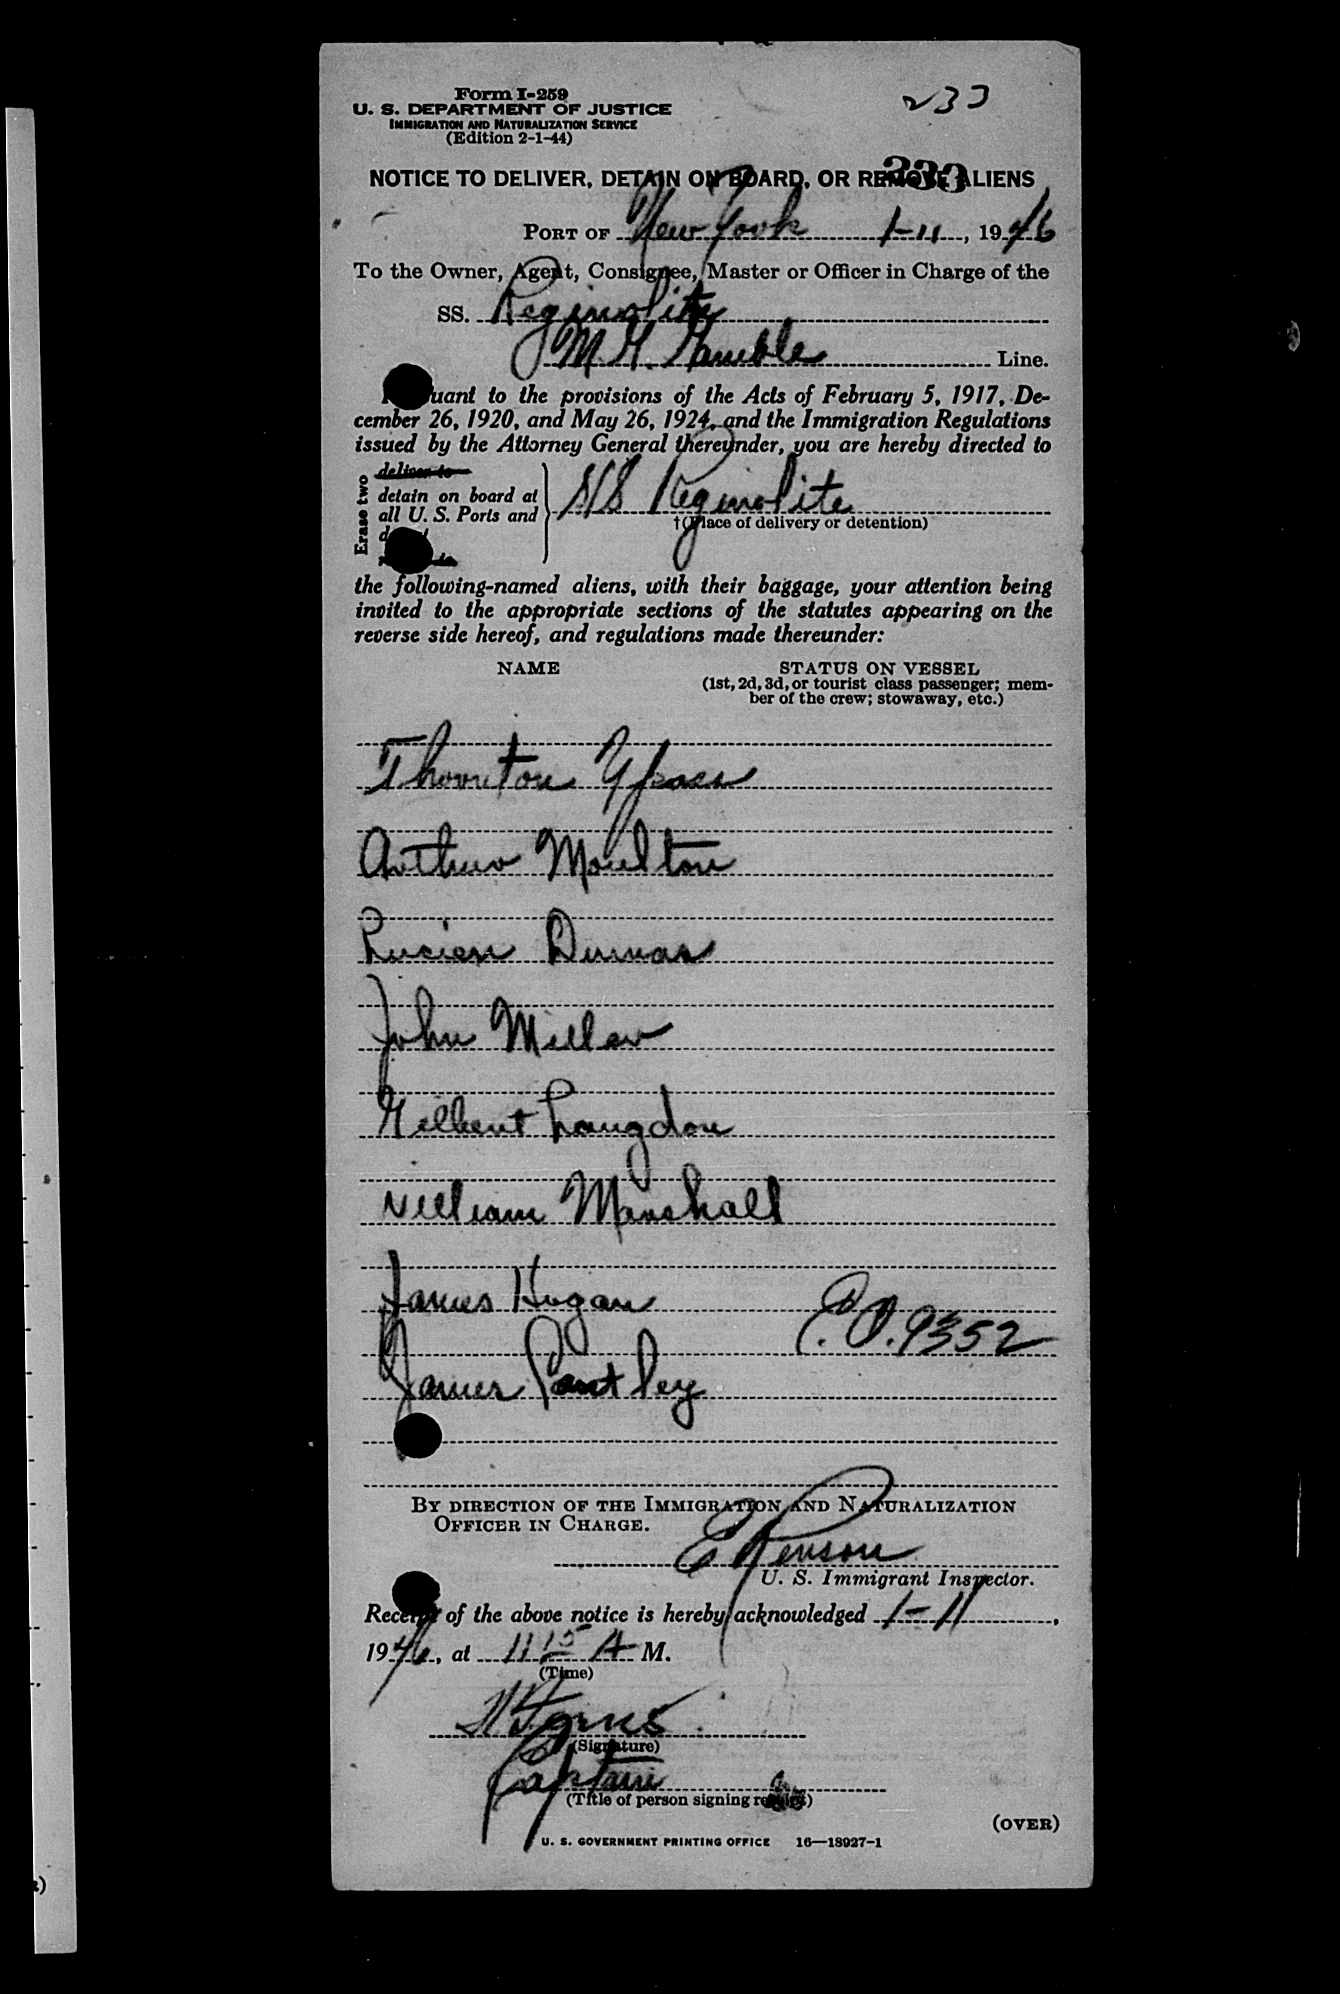 Form I-259
U. S. DEPARTMENT OF JUSTICE
IMMIGRATION AND NATURALIZATION SERVICE
(Edition 2-1-44)
233
233
NOTICE TO DELIVER, DETAIN ON BOARD, OR REMOVE ALIENS
PORT OF New York 1-11, 1946
To the Owner, Agent, Consignee, Master or Officer in Charge of the
SS. Reginolite
M. H. Gamble Line.
Pursuant to the provisions of the Acts of February 5, 1917, De-
cember 26, 1920, and May 26, 1924, and the Immigration Regulations
issued by the Attorney General thereunder, you are hereby directed to
Erase two
deliver to
detain on board at
all U. S. Ports and
SS Reginolite
†(Place of delivery or detention)
the following-named aliens, with their baggage, your attention being
invited to the appropriate sections of the statutes appearing on the
reverse side hereof, and regulations made thereunder:
NAME STATUS ON VESSEL
(1st, 2d, 3d, or tourist class passenger; mem-
ber of the crew; stowaway, etc.)
Thornton
Arthur Moulton
Lucien Dumas
John Miller
Gilbert Langdon
William Marshall
James Hogan
E.O. 9352
James Pantley
BY DIRECTION OF THE IMMIGRATION AND NATURALIZATION
OFFICER IN CHARGE.
U. S. Immigrant Inspector.
Receipt of the above notice is hereby acknowledged 1-11,
1946, at 11 15 A M.
(Time)
(Signature)
Captain
(Title of person signing receipt)
(OVER)
U. S. GOVERNMENT PRINTING OFFICE 16—18927-1